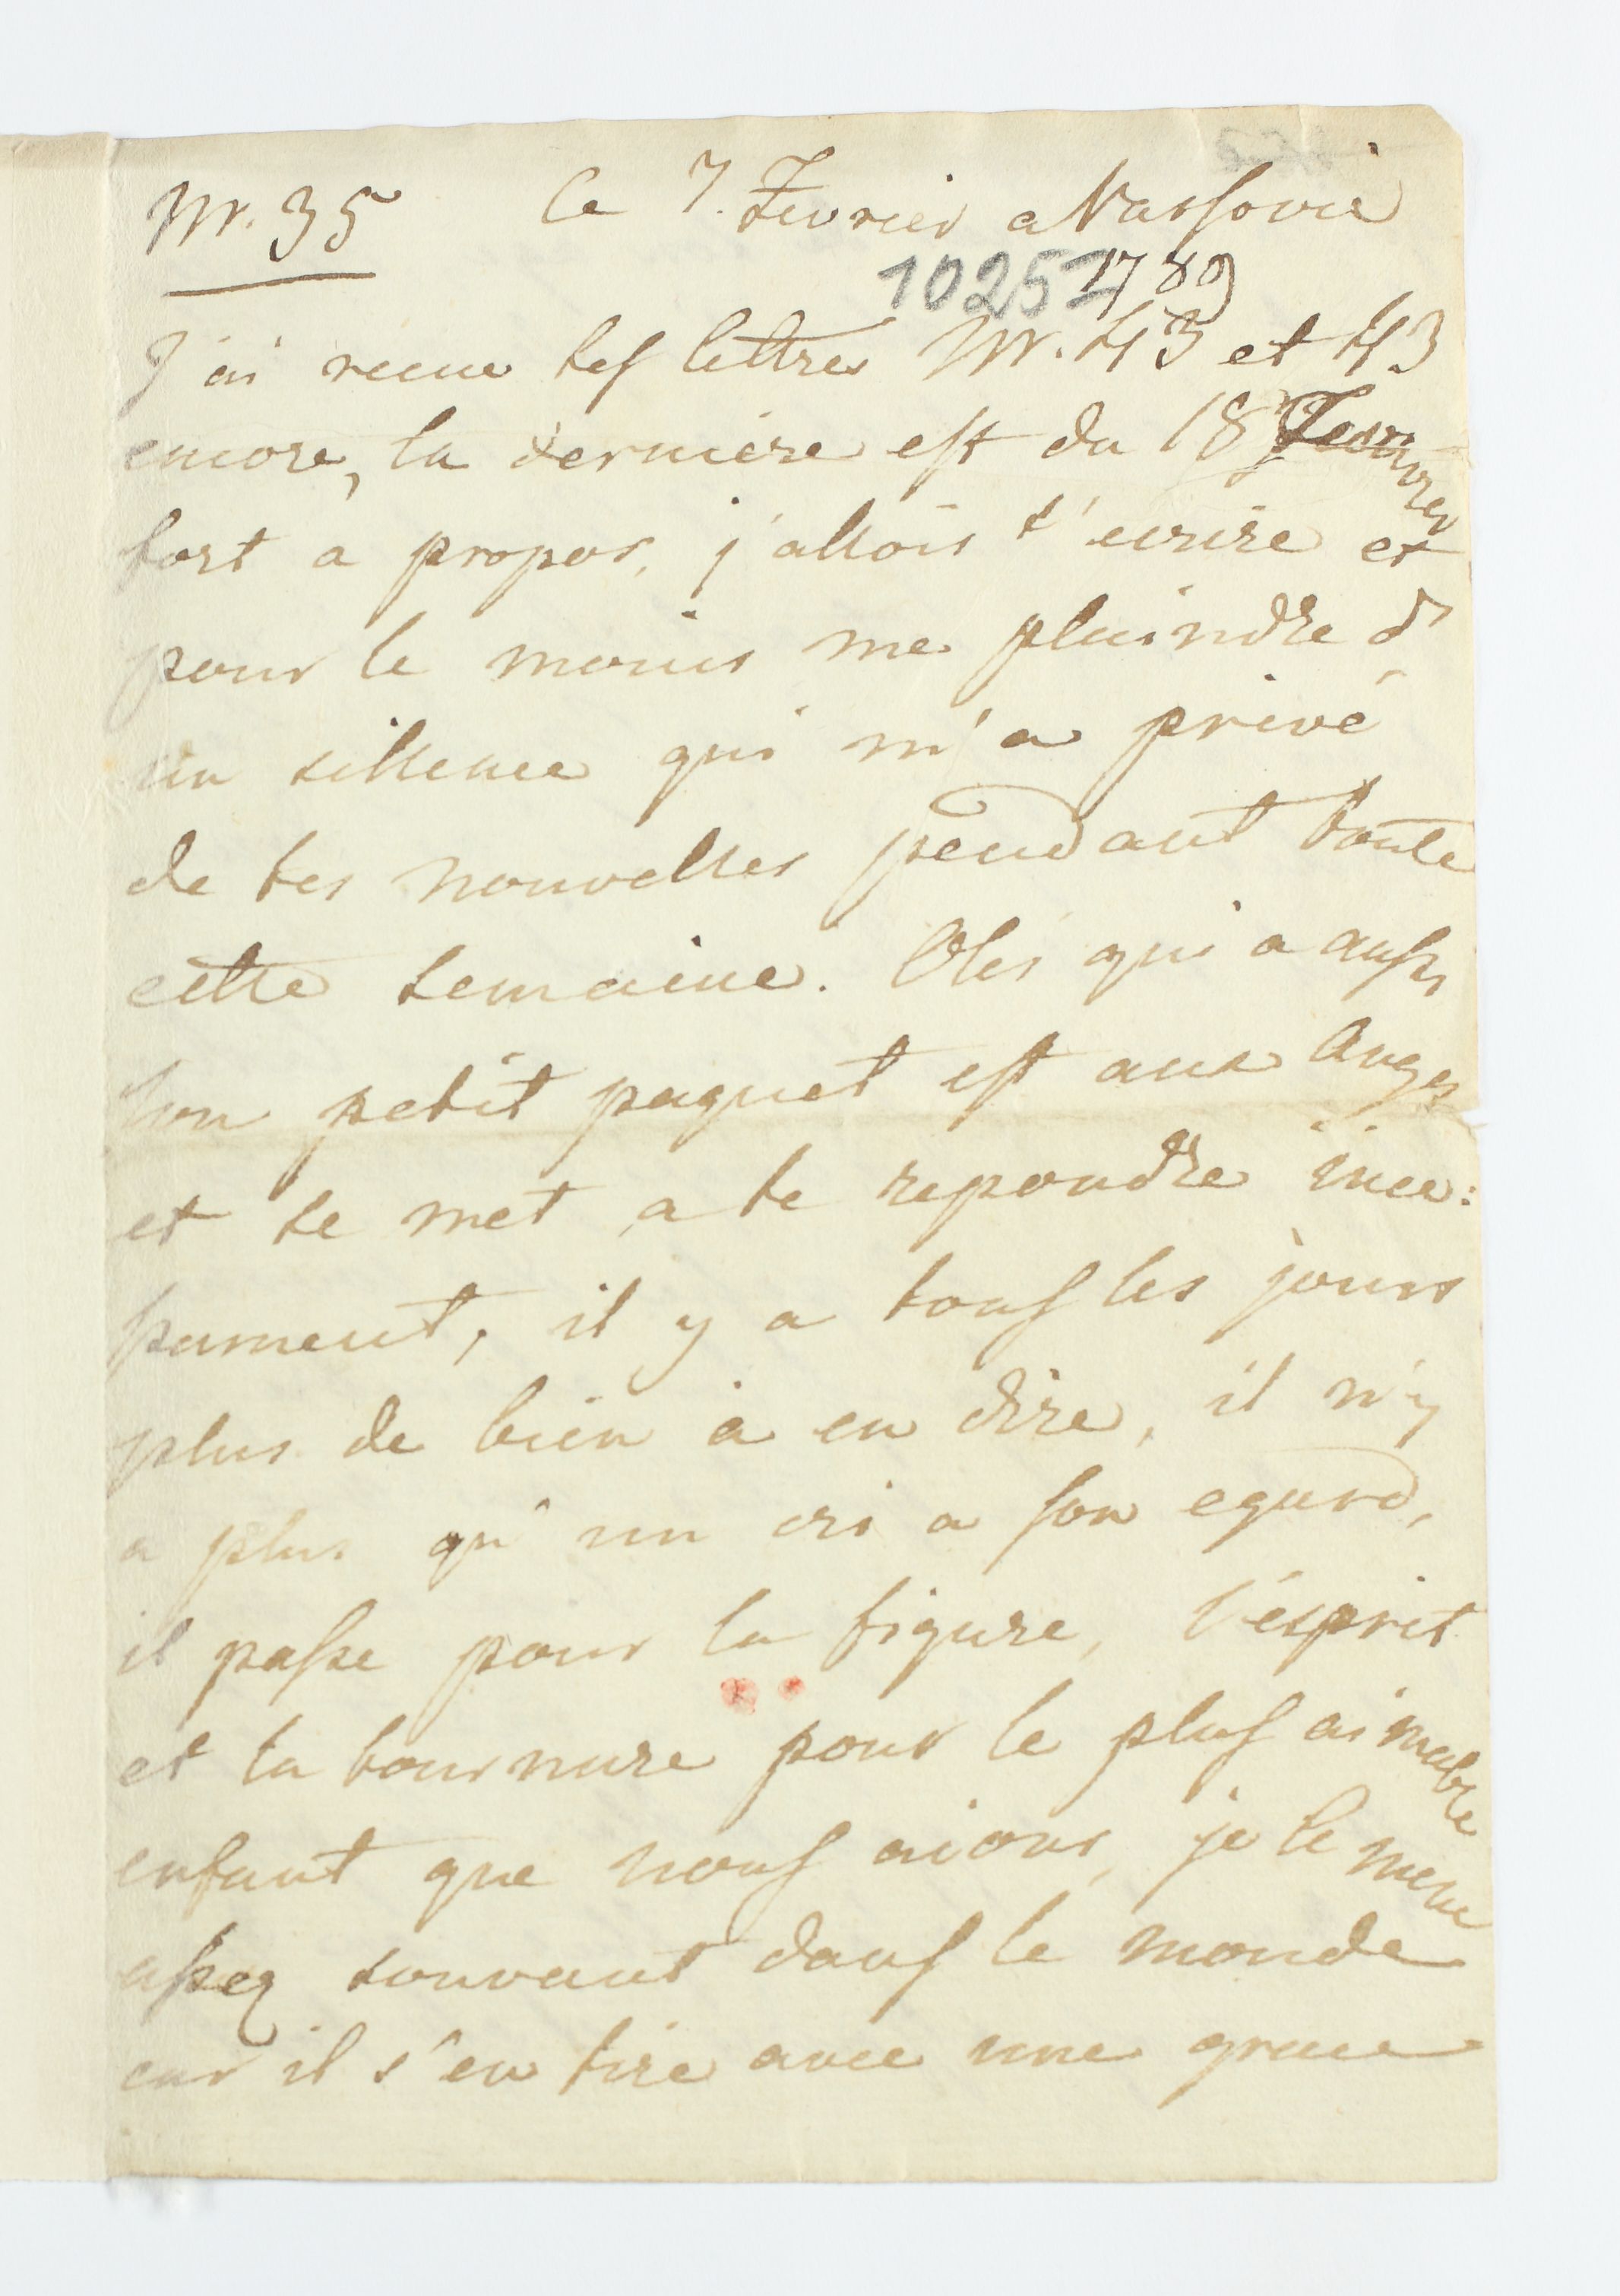 Nr. 35 Ce 7. Fevrier a Varsovie
10257 1789
J'ai recue tes lettres Nr. 43 et 43
encore, la derniere est du 18
fort a propos, j'allois t'ecrire et
pour le moins me plaindre d'
un sillence qui m'a privé
de tes nouvelles pendant toute
cette semaine. Olés qui a aussi
son petit paquet est aux Anges
et se met a te repondre ince:
sament, il y a tous les jours
plus de bien à en dire, il n'y
a plus qu'un cri a son egard,
il passe pour la figure, l'ésprit
et la tournure pour le plus aimable
enfant que nous aions, je le mene
assez souvant dans le monde
car il s'en tire avec une grace